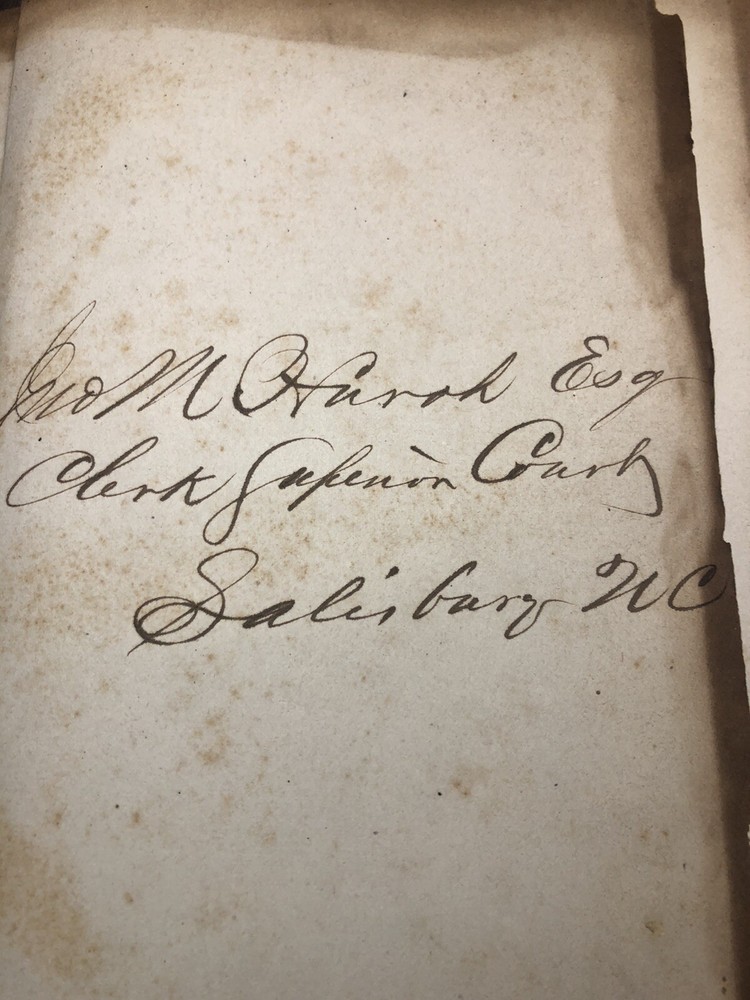 Jno M Horah Esq
Clerk Superior Court
Salisbury NC